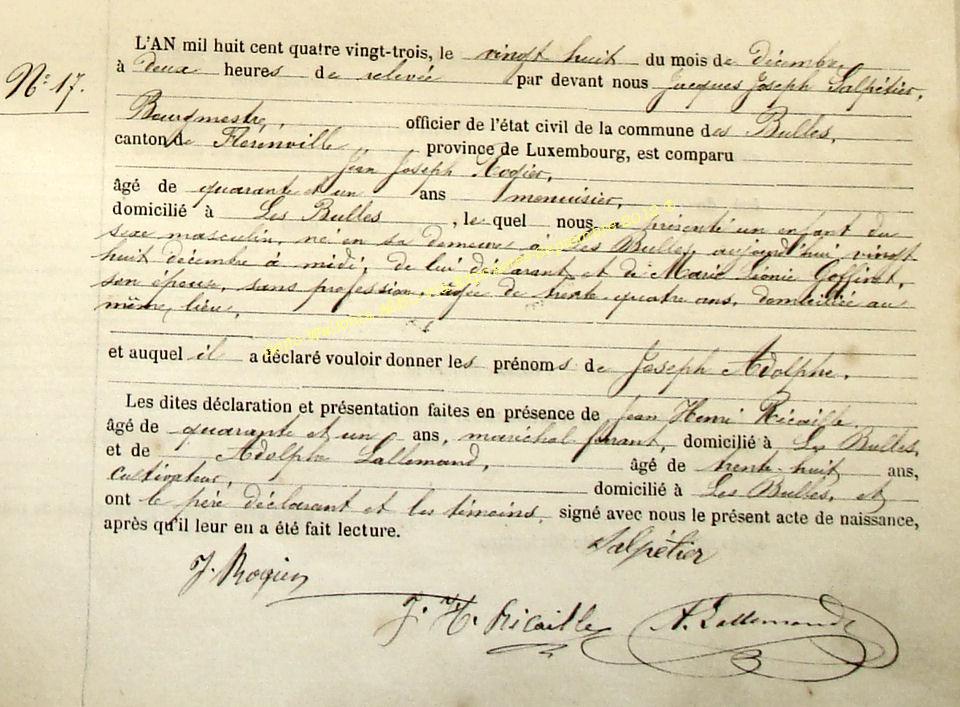 L'AN mil huit cent quatre vingt-trois, le vingt huit du mois de décembre
N° 17.
à deux heures de relevée par devant nous Jacques Joseph Salpétier,
Bourgmestre, officier de l'état civil de la commune des Bulles,
canton de Florenville province de Luxembourg, est comparu
Jean Joseph Rogier,
âgé de quarante et un ans menuisier,
domicilié à Les Bulles, lequel nous a présenté un enfant du
sexe masculin, né en sa demeure à Les Bulles, aujourd'hui vingt
huit décembre à midi, de lui déclarant et de Marie Léonie Goffinet,
son épouse, sans profession, âgée de trente quatre ans, domiciliée au
même lieu,
et auquel il a déclaré vouloir donner les prénoms de Joseph Adolphe.
Les dites déclaration et présentation faites en présence de Jean Henri Ricaille,
âgé de quarante et un ans, maréchal ferrant, domicilié à Les Bulles,
et de Adolphe Lallemand, âgé de trente-huit ans,
cultivateur, domicilié à Les Bulles, et
ont le père déclarant et les témoins, signé avec nous le présent acte de naissance,
après qu'il leur en a été fait lecture.
Salpétier
J. Rogier
J. H. Ricaille A. Lallemand